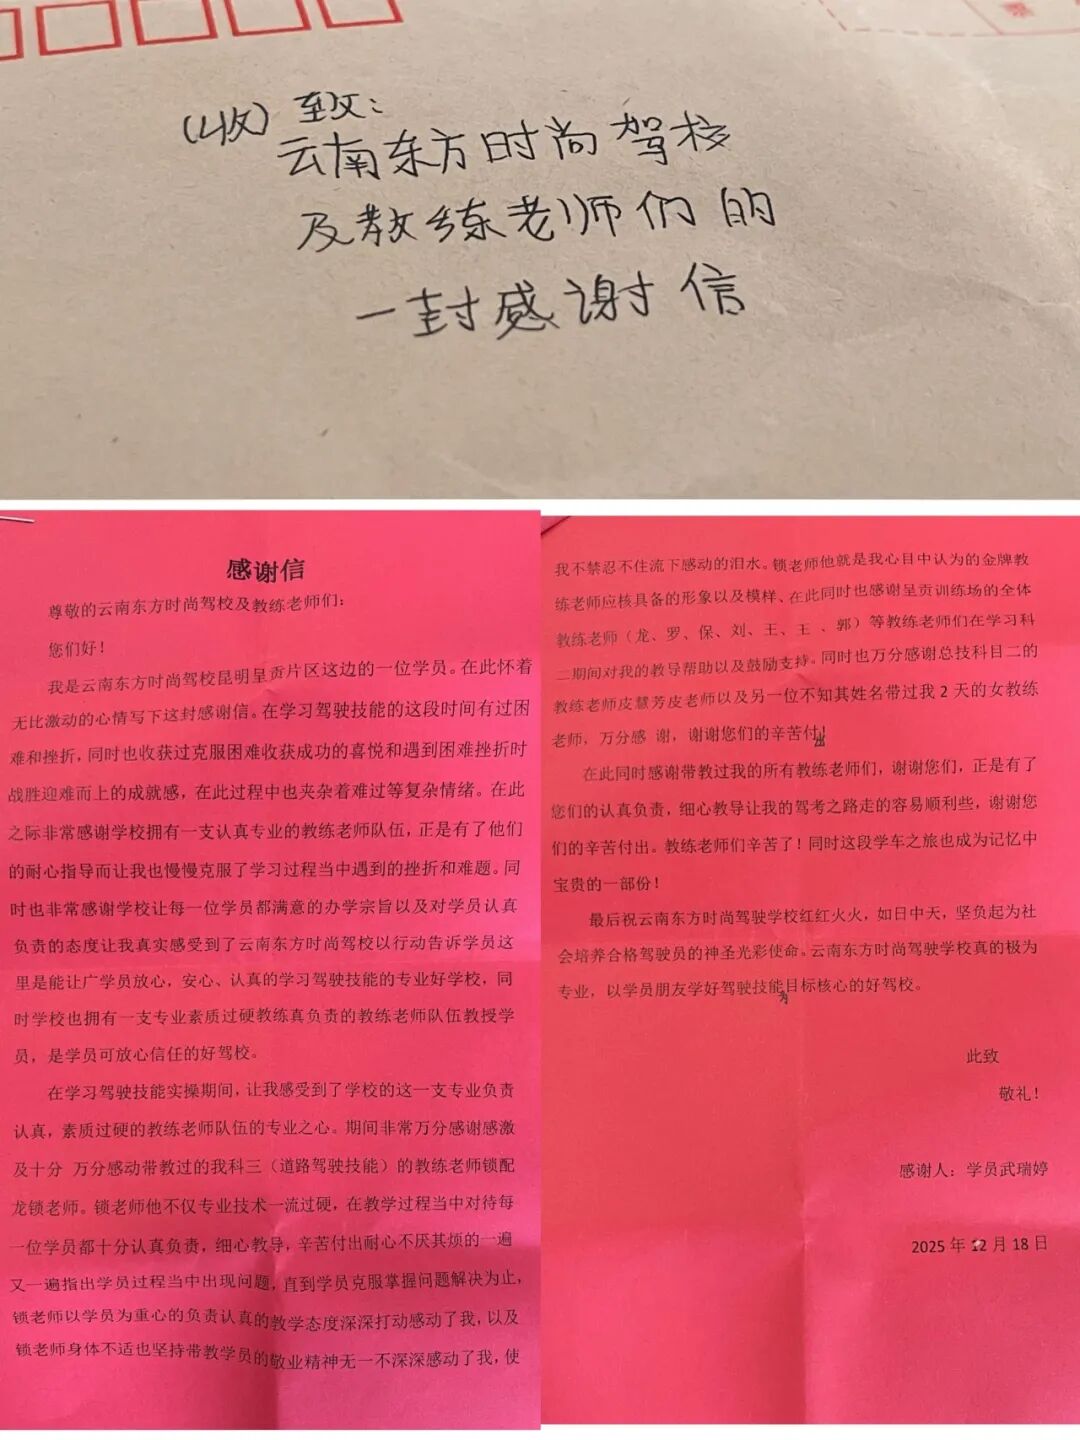 (收) 致:
云南东方时尚驾校
及教练老师们的
一封感谢信
感谢信
尊敬的云南东方时尚驾校及教练老师们:
您们好!
我是云南东方时尚驾校昆明呈贡片区这边的一位学员。在此怀着
无比激动的心情写下这封感谢信。在学习驾驶技能的这段时间有过困
难和挫折,同时也收获过克服困难收获成功的喜悦和遇到困难挫折时
战胜迎难而上的成就感,在此过程中也夹杂着难过等复杂情绪。在此
之际非常感谢学校拥有一支认真专业的教练老师队伍,正是有了他们
的耐心指导而让我也慢慢克服了学习过程当中遇到的挫折和难题。同
时也非常感谢学校让每一位学员都满意的办学宗旨以及对学员认真
负责的态度让我真实感受到了云南东方时尚驾校以行动告诉学员这
里是能让广学员放心,安心、认真的学习驾驶技能的专业好学校,同
时学校也拥有一支专业素质过硬教练真负责的教练老师队伍教授学
员,是学员可放心信任的好驾校。
在学习驾驶技能实操期间,让我感受到了学校的这一支专业负责
认真,素质过硬的教练老师队伍的专业之心。期间非常万分感谢感激
及十分 万分感动带教过的我科三(道路驾驶技能)的教练老师锁配
龙锁老师。锁老师他不仅专业技术一流过硬,在教学过程当中对待每
一位学员都十分认真负责,细心教导,辛苦付出耐心不厌其烦的一遍
又一遍指出学员过程当中出现问题,直到学员克服掌握问题解决为止,
锁老师以学员为重心的负责认真的教学态度深深打动感动了我,以及
锁老师身体不适也坚持带教学员的敬业精神无一不深深感动了我,使
我不禁忍不住流下感动的泪水。锁老师他就是我心目中认为的金牌教
练老师应核具备的形象以及模样、在此同时也感谢呈贡训练场的全体
教练老师(龙、罗、保、刘、王、王 、郭)等教练老师们在学习科
二期间对我的教导帮助以及鼓励支持。同时也万分感谢总技科目二的
教练老师皮慧芳皮老师以及另一位不知其姓名带过我 2 天的女教练
老师,万分感 谢,谢谢您们的辛苦付出!
在此同时感谢带教过我的所有教练老师们,谢谢您们,正是有了
您们的认真负责,细心教导让我的驾考之路走的容易顺利些,谢谢您
们的辛苦付出。教练老师们辛苦了!同时这段学车之旅也成为记忆中
宝贵的一部份!
最后祝云南东方时尚驾驶学校红红火火,如日中天,坚负起为社
会培养合格驾驶员的神圣光彩使命。云南东方时尚驾驶学校真的极为
专业,以学员朋友学好驾驶技能为目标核心的好驾校。
此致
敬礼!
感谢人:学员武瑞婷
2025 年 12 月 18 日